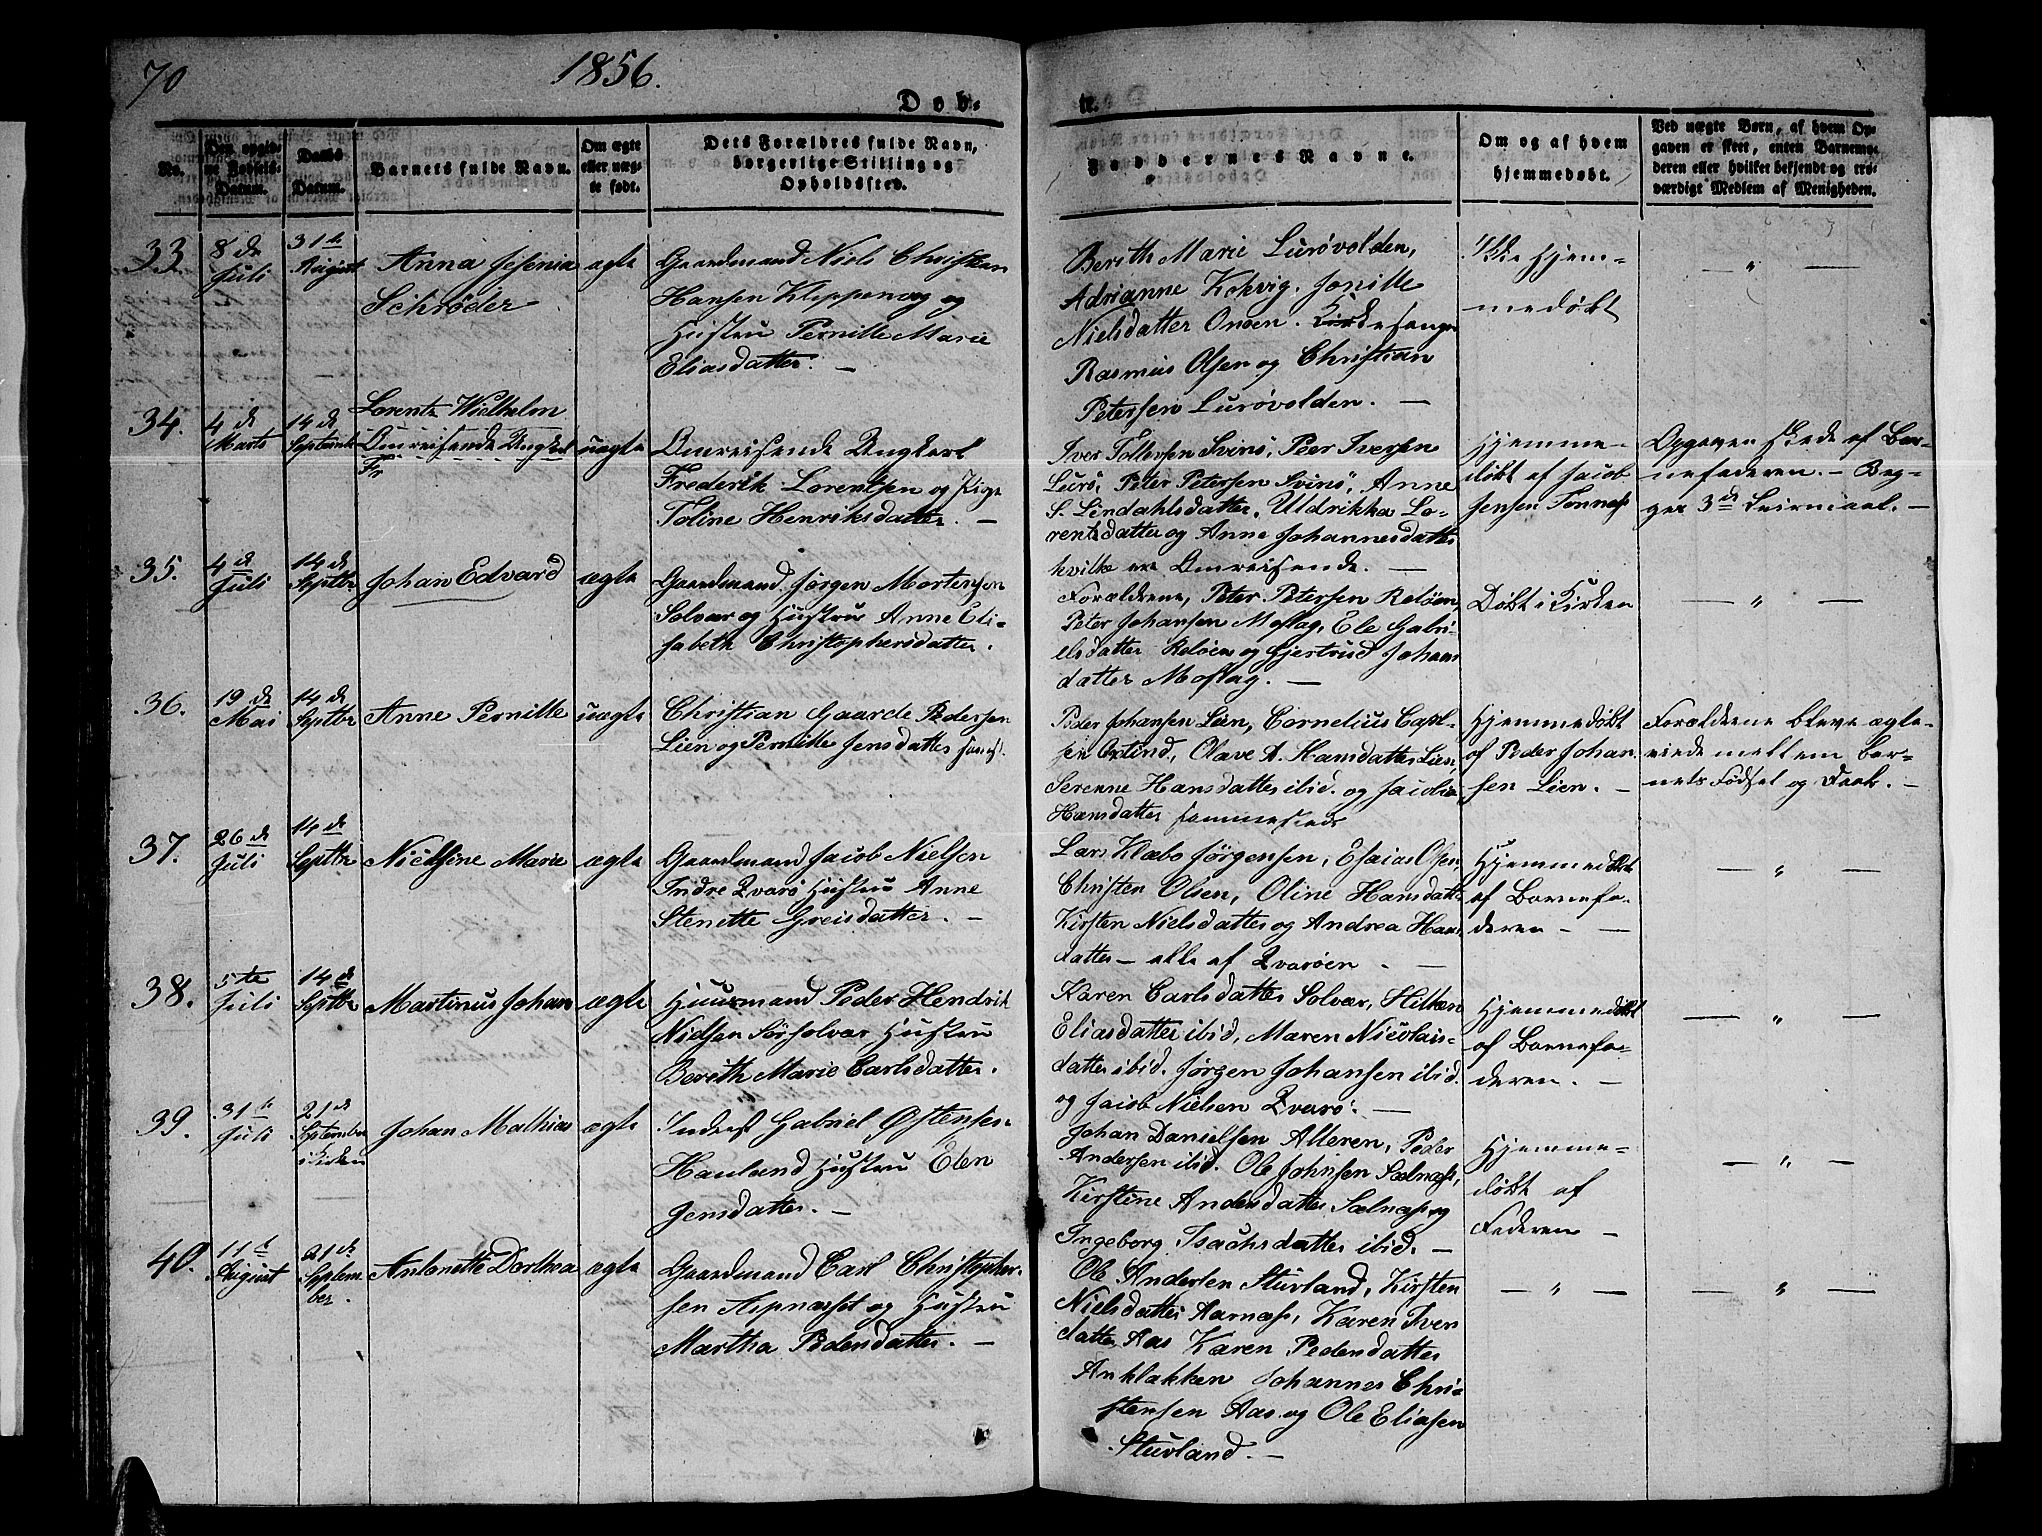 70
1856.
Døb-
te.
No.
Den opgiv-
ne Fødsels-
Datum.
Daabs-
Datum.
Barnets fulde Navn.
Om ægte
eller uæg-
te født.
Dets Forældres fulde Navn,
borgerlige Stilling og
Opholdssted.
Faddernes Navne.
Om og af hvem
hjemmedøbt.
Ved uægte Børn, af hvem Op-
gaven er skeet, enten Barnemo-
deren eller hvilket bekjendt og tro-
værdigt Medlem af Menigheden.
33.
8de
Juli
31te
August
Anna Jesenia
Schrøder
ægte
Gaardmand Niels Christian
Hansen Kleppenæg og
Hustru Pernille Marie
Eliasdatter. —
Berith Marie Lurøvolden,
Adrianne Kokvig. Jonille
Nielsdatter Onøen. Kirkesanger
Rasmus Olsen og Christian
Petersen Lurøvolden. —
Ikke Hjem-
medøbt
— " —
34.
4de
Marts
14de
Septembr
Lorentz Wielhelm
Omreisende Ungkarl
Fr
uægte
Omreisende Ungkarl
Frederik Lorentsen og Pige
Toline Henriksdatter. —
Iver Tollevsen Svinø, Peer Iversen
Lurø, Peter Petersen Svinø, Anne
S. Lindahlsdatter, Uldrikka Lo-
rentsdatter og Anne Johannesdatter
hvilke ere Omreisende. —
Hjemme-
døbt af Jacob
Jensen Tonnes
Opgaven skede af Bar-
nefaderen. — Beg-
ges 3de Leiermaal. —
35.
4de
Juli
14de
Septbr
Johan Edvard
ægte
Gaardmand Jørgen Mortensen
Solvær og Hustru Anne Eli-
sabeth Christophersdatter.
Forældrene, Peter Petersen Reløen,
Peter Johansen Moflag, Ele Gabri-
elsdatter Reløen og Gjertrud Johans
datter Moflag. —
Døbt i Kirken
— " —
36.
19de
Mai
14de
Septbr
Anne Pernille
uægte
Christian Gaarde Pedersen
Lien og Pernille Jensdatter
Peder Johansen Lien, Cornelius Carl-
sen Olave A. Hansdatter Lien,
Serenne Hansdatter ibid. og
Hansdatter sammesteds
Hjemmedøbt
af Peder Johan
sen Lien. —
Forældrene bleve ægte-
viede mellem Bar-
nets Fødsel og Daab. —
37.
26de
Juli
14de
Septbr
Nielsine Marie
ægte
Gaardmand Jacob Nielsen
Indre Qvarø Hustru Anne
Stenette Greisdatter. —
Lars Klæbo Jørgensen, Esaias Olsen,
Christen Olsen, Oline Hansdatter
Kirsten Nielsdatter og Andrea Hans
datter — alle af Qvarøen. —
Hjemmedøbt
af Barnefa-
deren — —
— " —
38.
5te
Juli
14de
Septbr
Martinus Johan
ægte
Huusmand Peder Hendrik
Nielsen Sørsolvær Hustru
Berith Marie Carlsdatter.
Karen Carlsdatter Solvær,
Eliasdatter ibid, Maren Nicolais-
datter ibid. Jørgen Johansen ibid.
og Jacob Nielsen Qvarø. —
Hjemmedøbt
af Barnefa-
deren. —
— " —
39.
31te
Juli
21de
September
i Kirken
Johan Mathias
ægte
Inderst Gabriel Østensen
Hauland Hustru Elen
Jensdatter. —
Johan Danielsen Alteren, Peder
Andersen ibid. Ole Johnsen Sælnæss,
Kirstine Andersdatter Sælnæs og
Ingeborg Isachsdatter ibid. —
Hjemme-
døbt af
Faderen —
— " —
40.
11te
August
21de
Septem
ber.
Antonette Dorthea
ægte
Gaardmand Carl Christopher-
sen Aspnæsset og Hustru
Martha Pedersdatter. —
Ole Andersen Stuvland, Kirsten
Nielsdatter Aarnæss, Karen Iver
datter Aas Karen Pedersdatter
Anklakken Johannes Chri-
stensen Aas. og Ole Eliasen
Stuvland. —
— " —
— " —